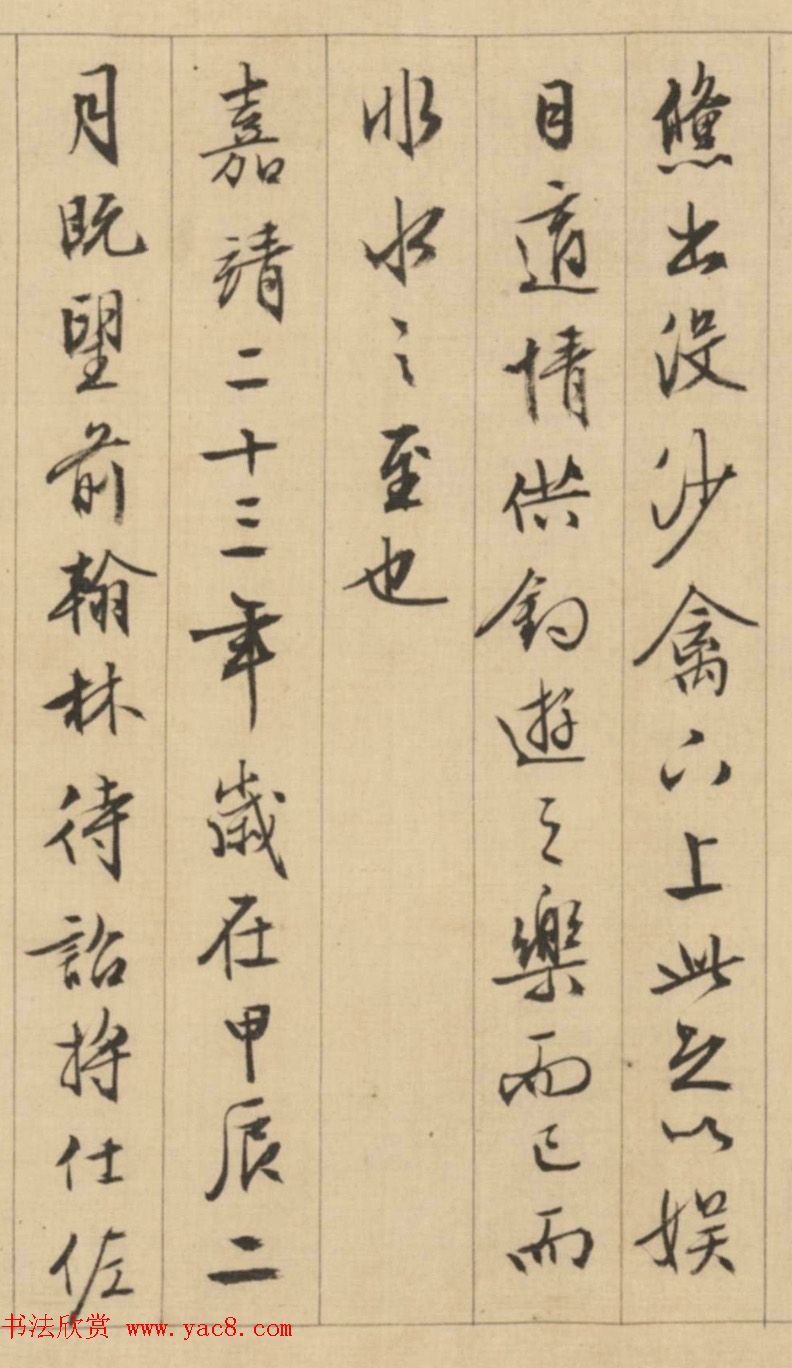 出没沙禽下上此足以娱
目適情供釣遊之樂而已而
非水之至也
嘉靖二十三年歲在甲辰二
月既望前翰林待詔將仕佐
书法欣赏 www.yac8.com